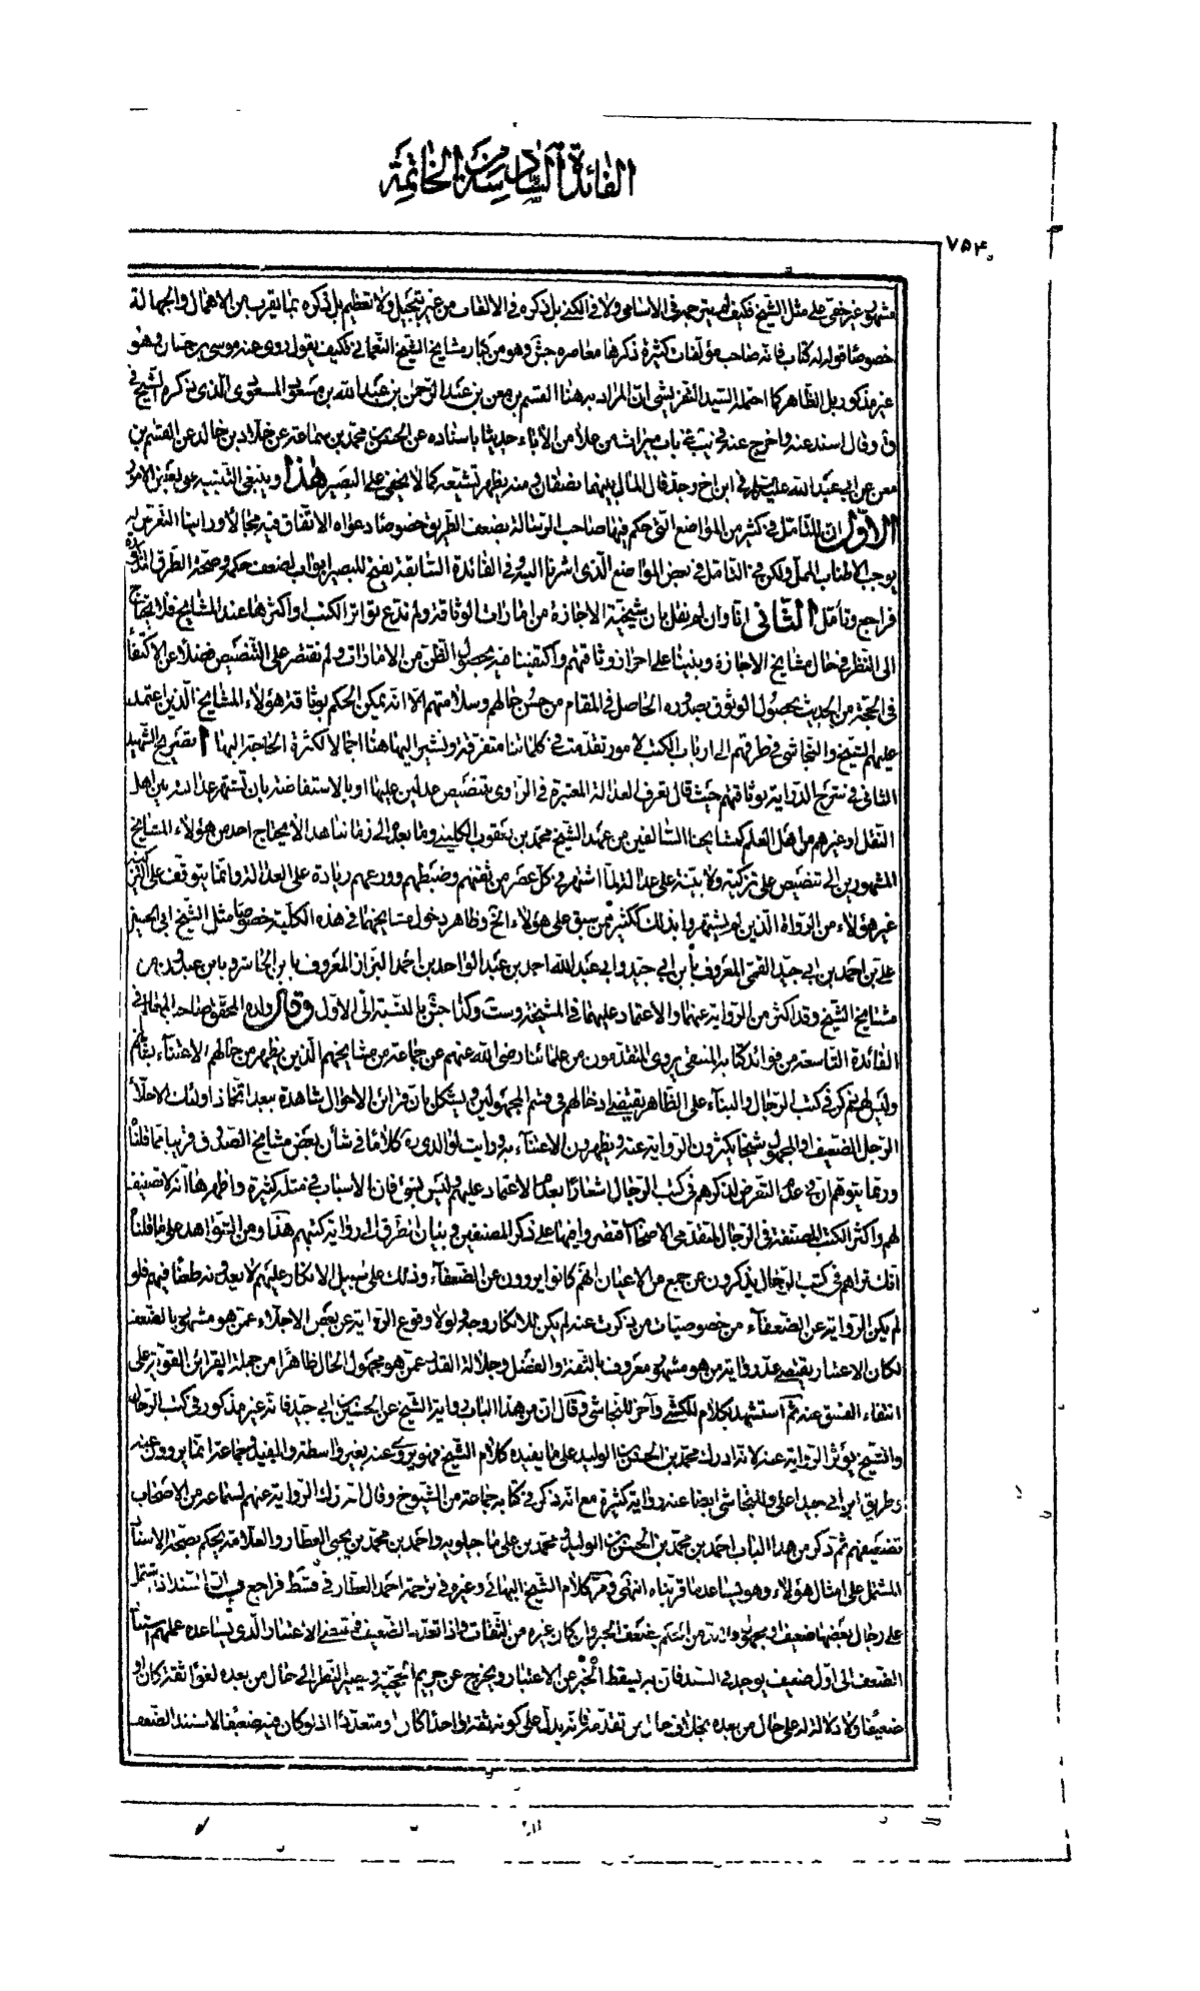 الفائدة السادسة من الخاتمة
٧٥۴
مشهور غير خفي على مثل الشيخ فكيف لم يترجم في الاسامي ولا في الكنى بل ذكره في الالقاب من غير تبجيل ولا تعظيم بل ذكره بما يقرب من الاهمال والجهالة
خصوصا قوله له كتاب فانه صاحب مؤلفات كثيرة ذكرها معاصره جش وهو من كبار مشايخ الشيخ النعماني فكيف يقول روى عنه موسى بن حسان وهو
غير مذكور بل الظاهر كما احتمله السيد التفريشي ان المراد به هنا القسم بن معن بن عبد الرحمن بن عبد الله بن مسعود المسعودي الذي ذكره الشيخ في
ق وقال اسند عنه واخرج عنه في يب في باب ميراث من علا من الآباء حديثا باسناده عن الحسن بن محمد بن سماعة عن خلاد بن خالد عن القسم بن
معن عن ابي عبد الله عليه السلم في ابن اخ وجد قال المال بينهما نصفان ومنه يظهر تشيعه كما لا يخفى على البصير هذا وينبغي التنبيه على بعض الامور
الاول ان للتامل في كثير من المواضع التي حكم فيها صاحب الرسالة بضعف الطريق خصوصا دعواه الاتفاق فيه مجالا وراينا التعرض له
يوجب الاطناب الممل ولكن في التامل في بعض المواضع الذي اشرنا اليه وفي الفائدة السابقة يفتح للبصير ابواب لضعف حكمه وصحة الطرق
فراجع وتامل الثاني انا وان لم نقل بان شيخية الاجازة من امارات الوثاقة ولم ندع تواتر الكتب او اكثرها عند المشايخ فلا يحتاج
الى النظر في حال مشايخ الاجازة وبنينا على احراز وثاقتهم واكتفينا فيه بحصول الظن من الامارات ولم نقتصر على التنصيص فضلا عن الاكتفاء
في الحجة من الحديث بحصول الوثوق بصدوره الحاصل في المقام من حسن حالهم وسلامتهم الا انه يمكن الحكم بوثاقة هؤلاء المشايخ الذين اعتمد
عليهم الشيخ والنجاشي في طرقهم الى ارباب الكتب لامور تقدمت في كلماتنا متفرقة ونشير اليها هنا اجمالا لكثرة الحاجة اليها ا تصريح الشهيد
الثاني في شرح الدراية بوثاقتهم حيث قال تعرف العدالة المعتبرة في الراوي بتنصيص عدلين عليها او بالاستفاضة بان تشتهر عدالته بين اهل
النقل او غيرهم من اهل العلم كمشايخنا السالفين من عهد الشيخ محمد بن يعقوب الكليني وما بعده الى زماننا هذا لا يحتاج احد من هؤلاء المشايخ
المشهورين الى تنصيص على تزكية ولا بينة على عدالة لما اشتهر في كل عصر من ثقتهم وضبطهم وورعهم زيادة على العدالة وانما يتوقف على التزكية
غير هؤلاء من الرواة الذين لم يشتهروا بذلك ككثير ممن سبق على هؤلاء الخ وظاهر دخول مشايخهما في هذه الكلية خصوصا مثل الشيخ ابي الحسين
علي بن احمد بن ابي جيد القمي المعروف بابن ابي جيد وابي عبد الله احمد بن عبد الواحد بن احمد البزاز المعروف بابن الحاشر وبابن عبدون من
مشايخ الشيخ وقد اكثر من الرواية عنهما والاعتماد عليهما في المشيخة وست وكذا جش بالنسبة الى الاول وقال ولده المحقق صاحب المعالم في
الفائدة التاسعة من فوائد كتابه المنتقى يروى المتقدمون من علمائنا رضي الله عنهم عن جماعة من مشايخهم الذين يظهر من حالهم الاعتناء بشانهم
وليس لهم ذكر في كتب الرجال والبناء على الظاهر يقتضي ادخالهم في قسم المجهولين ويشكل بان قرائن الاحوال شاهدة ببعد اتخاذ اولئك الاجلاء
الرجل الضعيف والمجهول شيخا يكثرون الرواية عنه ويظهرون الاعتناء به ورايت لوالدي ره كلاما في شان بعض مشايخ الصدوق قريبا مما قلناه
وربما يتوهم ان في عدم التعرض لذكرهم في كتب الرجال اشعارا بعدم الاعتماد عليهم وليس بشئ فان الاسباب في مثله كثيرة واظهرها انه لا تصنيف
لهم واكثر الكتب المصنفة في الرجال لمتقدمي الاصحاب اقتصروا فيها على ذكر المصنفين وبيان الطرق الى رواية كتبهم هذا ومن الشواهد على ما قلناه
انك تراهم في كتب الرجال يذكرون عن جمع من الاعيان انهم كانوا يروون عن الضعفاء وذلك على سبيل الانكار عليهم لانه يعدونه طعنا فيهم فلو
لم يكن الرواية عن الضعفاء من خصوصيات من ذكرت عنه لم يكن للانكار وجه ولولا وقوع الرواية عن بعض الاجلاء عمن هو مشهور بالضعف
لكان الاعتبار يقتضي عد رواية من هو مشهور معروف بالثقة والفضل وجلالة القدر عمن هو مجهول الحال ظاهرا من جملة القرائن القوية على
انتفاء الفسق عنه ثم استشهد بكلام للكشي وآخر للنجاشي وقال ان من هذا الباب رواية الشيخ عن الحسين بن ابي جيد فانه غير مذكور في كتب الرجال
والشيخ يؤثر الرواية عنه لانه ادرك محمد بن الحسن بن الوليد على ما يفيده كلام الشيخ فهو يروى عنه بغير واسطة والمفيد وجماعة انما يروون عنه
وطريق ابن ابي جيد اعلى وللنجاشي ايضا عنه رواية كثيرة مع انه ذكر في كتابه جماعة من الشيوخ وقال انه ترك الرواية عنهم لسماعه من الاصحاب
تضعيفهم ثم ذكر من هذا الباب احمد بن محمد بن الحسن بن الوليد ومحمد بن علي ماجيلويه واحمد بن محمد بن يحيى العطار والعلامة يحكم بصحة الاسناد
المشتمل على امثال هؤلاء وهو يساعد ما قربناه انتهى ومر كلام الشيخ البهائي وغيره في ترجمة احمد العطار في فراجع السند اذا اشتمل
على رجال بعضها ضعيف او مجهول
الضعف الى اول ضعيف يوجد في السند فان به يسقط الخبر عن الاعتبار ويخرج عن حريم الحجية ويصير النظر الى حال من بعده لغوا ثقة كان او
ضعيفا ولا دلالة له على حال من بعده بخلاف حال من تقدمه فانه يدل على كونه ثقة واحدا كان او متعددا اذ لو كان فيه ضعيفا لاستند الضعف